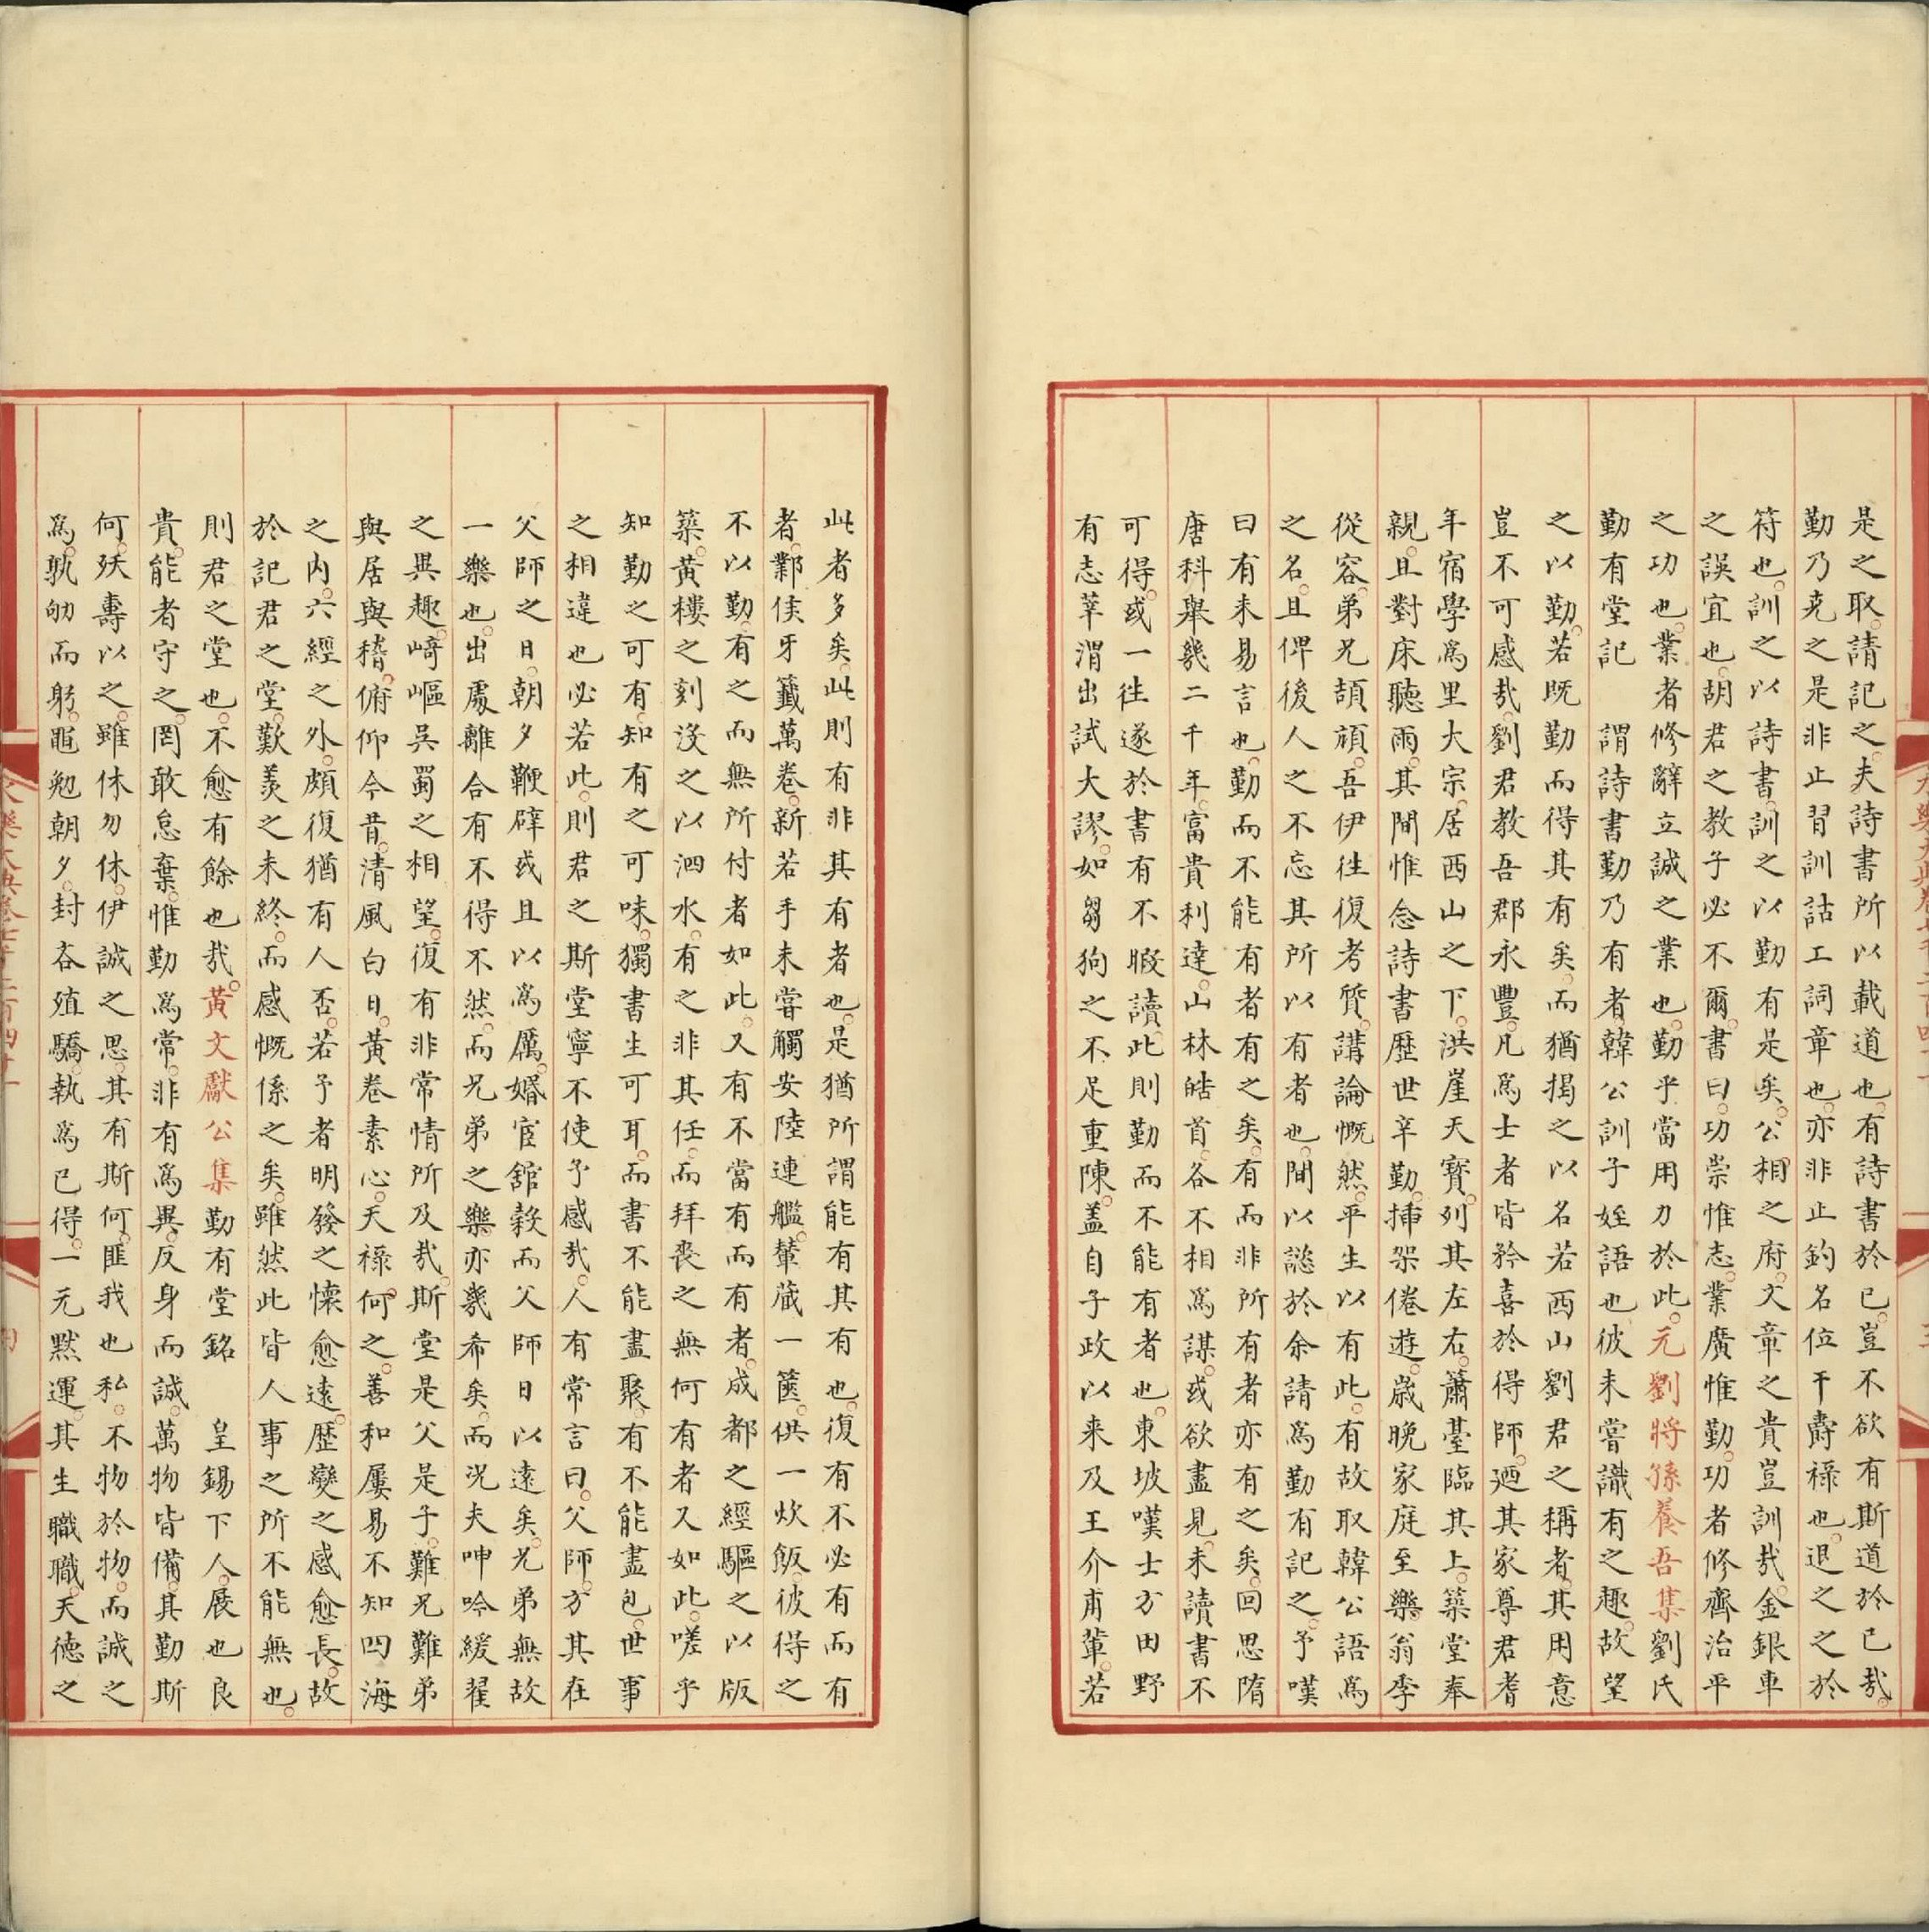 是之取。請記之。夫詩書所以載道也。有詩書於已。豈不欲有斯道於已哉。
勤乃克之是非止習訓詁工詞章也。亦非止釣名位干壽祿也。退之之於
符也。訓之以詩書。訓之以勤有是矣。公相之府。文章之貴豈訓哉。金銀車
之誤宜也。胡君之教子必不爾。書曰。功崇惟志。業廣惟勤。功者修齊治平
之功也。業者修辭立誠之業也。勤乎當用力於此。元劉將孫養吾集劉氏
勤有堂記 謂詩書勤乃有者韓公訓子姪語也彼未嘗識有之趣。故望
之以勤。若既勤而得其有矣。而猶揭之以名若西山劉君之稱者。其用意
豈不可感哉。劉君教吾郡永豐。凡爲士者皆矜喜於得師。廼其家尊君耆
年宿學爲里大宗。居西山之下。洪崖天寶。列其左右。蕭臺臨其上。築堂奉
親。且對床聽雨。其間惟念詩書歷世辛勤。插架倦遊。歲晚家庭至樂。翁季
從容。弟兄頡頏。吾伊往復考質。講論慨然。平生以有此。有故取韓公語爲
之名。且俾後人之不忘其所以有者也。間以謐於余請爲勤有記之。予嘆
曰有未易言也。勤而不能有者有之矣。有而非所有者亦有之矣。回思隋
唐科舉幾二千年。富貴利達。山林皓首。各不相爲謀。或欲盡見。未讀書不
可得。或一往遂於書有不暇讀。此則勤而不能有者也。東坡嘆士方田野
有志莘渭出試大謬。如芻狗之不足重陳。盖自子政以来及王介甫輩。若
此者多矣。此則有非其有者也。是猶所謂能有其有也。復有不必有而有
者。鄴侯牙籤萬卷。新若手未嘗觸安陸連艦。輦蔵一篋。供一炊飯。彼得之
不以勤。有之而無所付者如此。又有不當有而有者。成都之經驅之以版
築。黃樓之刻沒之以泗水。有之非其任。而拜喪之無何有者又如此。嗟乎
知勤之可有。知有之可味。獨書生可耳。而書不能盡聚。有不能盡包。世事
之相違也必若此。則君之斯堂寧不使予感哉。人有常言曰。父師。方其在
父師之日。朝夕鞭辟或且以爲厲。婚宦舘穀而父師日以遠矣。兄弟無故
一樂也。出處離合有不得不然。而兄弟之樂亦幾希矣。而况夫呻吟緩翟
之異趣。﨑嶇吳蜀之相望。復有非常情所及哉。斯堂是父是子。難兄難弟
與居與稽。俯仰今昔。清風白日。黃卷素心。天祿何之。善和屢易不知四海
之内。六經之外。頗復猶有人否。若予者明發之懷愈遠。歷變之感愈長。故
於記君之堂。歎羨之未終。而感慨係之矣。雖然此皆人事之所不能無也。
則君之堂也。不愈有餘也哉。黃文獻公集勤有堂銘 皇錫下人。展也良
貴。能者守之。罔敢怠棄。惟勤爲常。非有爲異。反身而誠。萬物皆備。其勤斯
何。殀壽以之。雖休勿休。伊誠之思。其有斯何。匪我也私。不物於物。而誠之
爲。孰劬而躬。黽勉朝夕。封吝殖驕。執爲已得。一元默運。其生職職。天德之